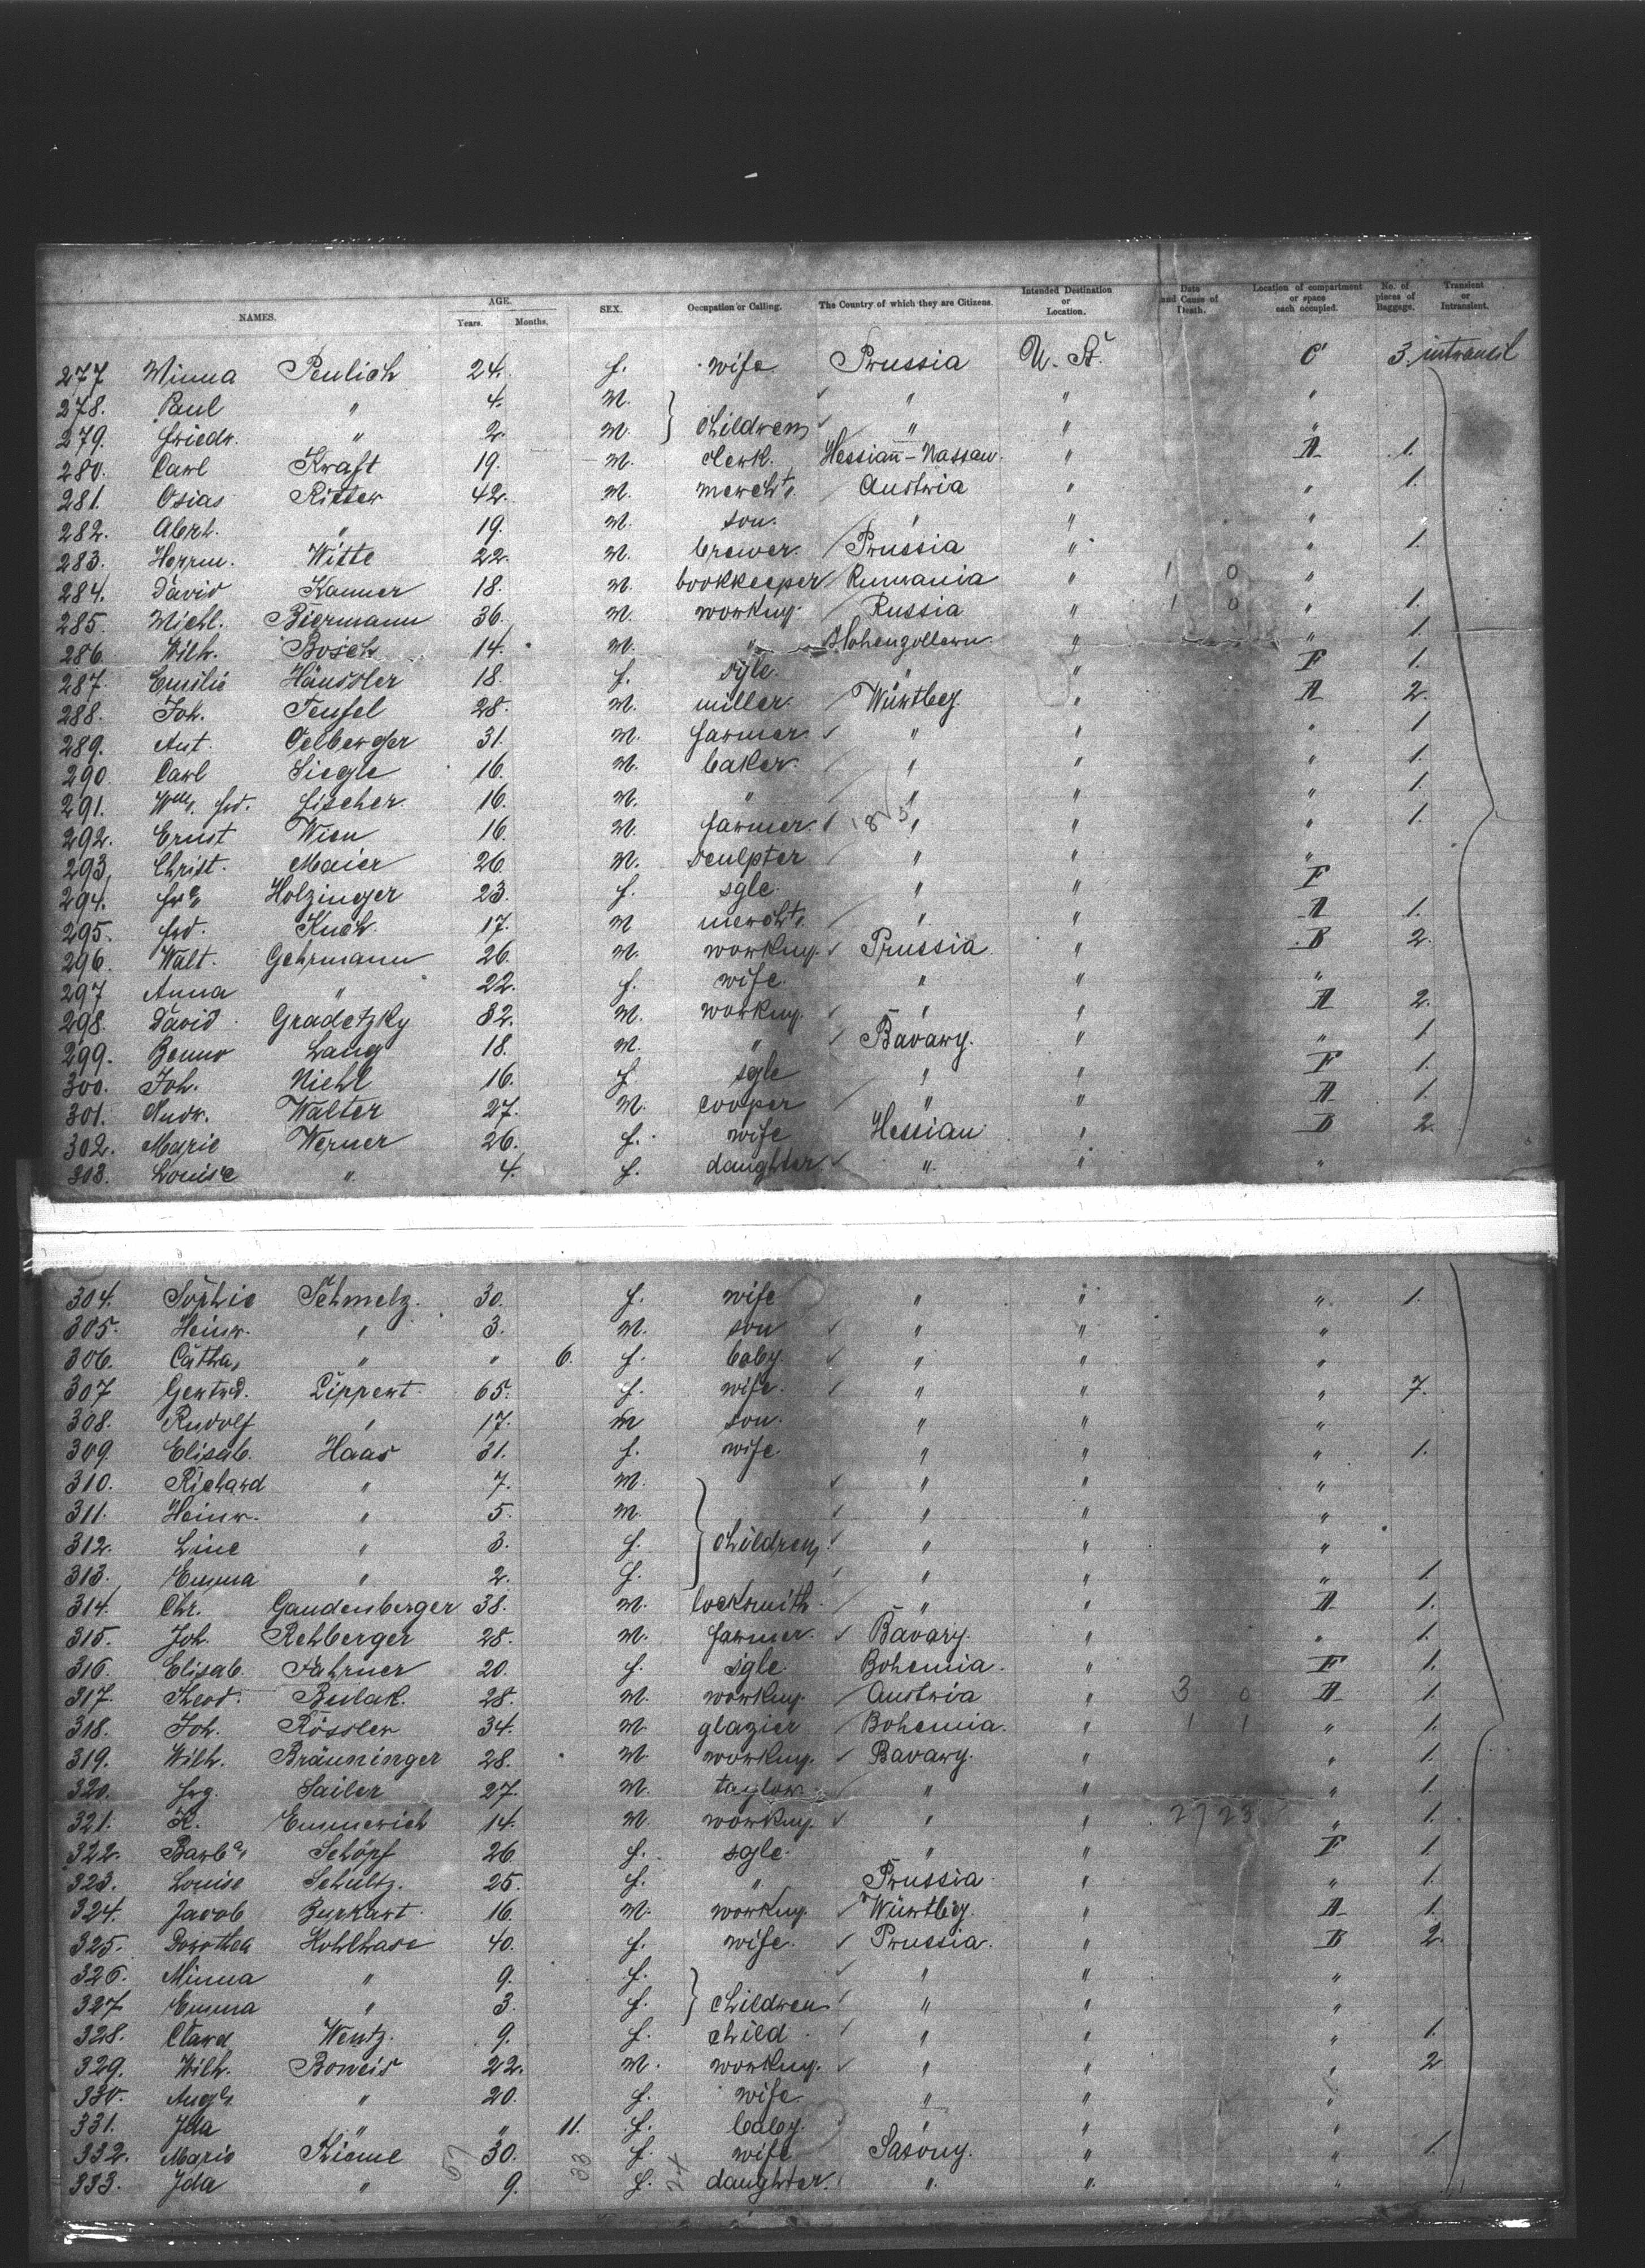 NAMES. AGE. Years. Months. SEX. Occupation or Calling. The Country of which they are Citizens. Intended Destination or Location. Date and Cause of Death. Location of compartment or space each occupied. No. of pieces of Baggage. Transient or Intransient.
277 Minna Peulich 24. f. wife Prussia U. St. C 3. intransit
278. Paul " 4. m. " " "
279. Friedr. " 2. m. } children " " "
280. Carl Kraft 19. m. clerk. Hessian-Nassau. " A 1.
281. Osias Ritter 42. m. mercht. Austria " " 1.
282. Abrh. " 19. m. son. " " "
283. Herrm. Witte 22. m. brewer. Prussia " " 1.
284. David Kanner 18. m. bookkeeper Rumania " 1 0 "
285. Michl. Biermann 36. m. workmg. Russia " 1 0 " 1.
286. Wilh. Bosch 14. m. " Hohenzollern. " " 1.
287. Emilie Häussler 18. f. sgle. " " F 1.
288. Joh. Teufel 28. m. miller. Würtbg. " A 2.
289. Ant. Oelberger 31. m. farmer. " " " 1
290. Carl Siegle 16. m. baker. " " " 1.
291. Fischer. 16. m. " " " " 1.
292. Ernst Wien 16. m. farmer. " " " 1.
293. Christ. Maier 26. m. sculpter " " "
294. Holzinger 23. f. sgle. " " F
295. frd. Kuch. 17. m mercht. " " A 1.
296. Walt. Gehrmann 26. m. workmg. Prussia " B 2.
297 Anna " 22. f. wife. " " "
298. David Gradetzky 32. m. workmg. " " A 2.
299. Benno Lang 18. m. " Bavary. " " 1
300. Joh. Niehl 16. f. sgle " " F 1.
301. Andr. Walter 27. m. cooper " " A 1.
302. Marie Werner 26. f. wife Hessian " B 2.
303. Louise " 4. f. daughter " " "
304. Sophie Schmelz. 30. f. wife " " " 1.
305. Heinr. " 3. m. son " " "
306. Catha. " " 6. f. baby. " " "
307 Gertrd. Lippert 65. f. wife. " " " 7.
308. Rudolf " 17. m son. " " "
309. Elisab. Haas 31. f. wife. " " " 1.
310. Richard " 7. m. " " "
311. Heinr. " 5. m. " " "
312. Line " 3. f. } children " " "
313. Emma " 2. f. " " " 1.
314. Chr. Gaudenberger 38. m. locksmith. " " A 1.
315. Joh. Rehberger 28. m. farmer. Bavary. " " 1.
316. Elisab. Fahrner 20. f. sgle. Bohemia. " F 1.
317. Theod. Bulak. 28. m. workmg. Austria " 3 0 A 1.
318. Joh. Rössler 34. m. glazier Bohemia. " 1 1 " 1.
319. Wilh. Bräuninger 28. m. workmg. Bavary. " " 1.
320. Sailer 27. m. taylor. " " " 1.
321. K. Emmerich 14. m. workmg. " " 27 23 " 1.
322. Barba. Schöpf 26 f. sgle. " " F 1
323. Louise Schultz. 25. f. " Prussia " " 1.
324. Jacob Burkart 16. m. workmg. Würtbg. " A 1.
325. Dorothea Kohlhase 40. f. wife. Prussia. " B 2.
326. Minna " 9. f. " " "
327 Emma " 3. f. } children " " "
328. Clara Wentz. 9. f. child " " " 1.
329. Wilh. 22. m. workmg. " " " 2
330. " 20. f. wife. " " "
331. Ida " " 11. f. baby. " " "
332. Marie Thieme 30. f. wife Saxony. " " 1.
333. Ida " 9. f. daughter. " " "